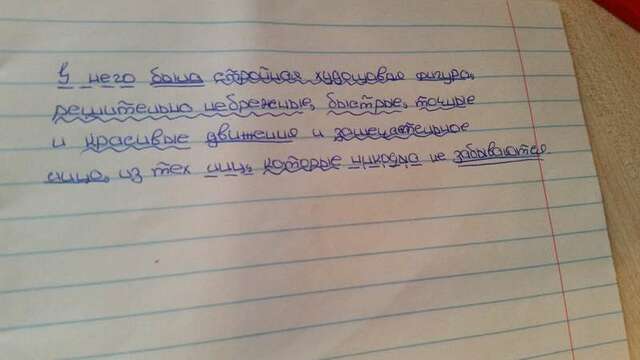 У него была стройная худощавая фигура,
решительно небрежные, быстрые, точные
и красивые движение и замечательное
лицо, из тех лиц, которые никогда не забываются